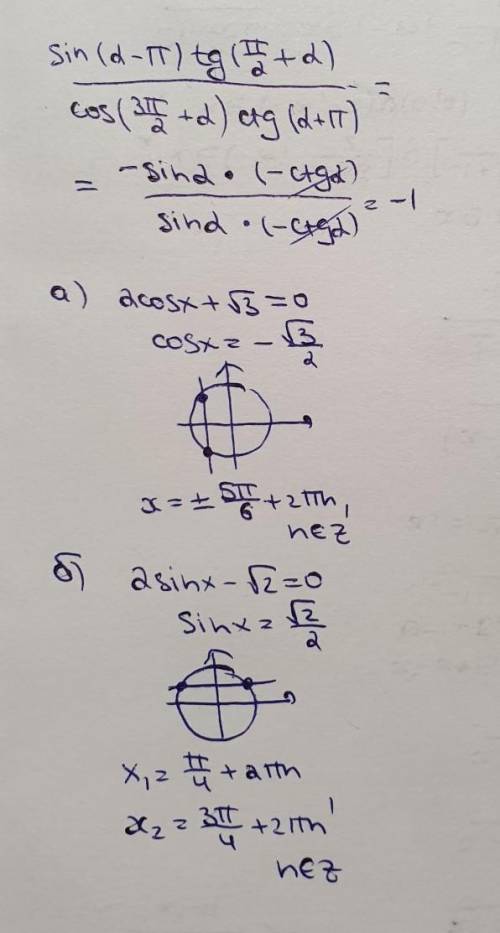 sin(α-π) tg(π/2+α) / cos(3π/2+α) ctg(α+π) =
= -sinα · (-ctgα) / sinα · (-ctgα) = -1
а) 2cosx + √3 = 0
cosx = - √3/2
x = ± 5π/6 + 2πn,
n∈Z
б) 2sinx - √2 = 0
sinx = √2/2
x₁ = π/4 + 2πn
x₂ = 3π/4 + 2πn,
n∈Z